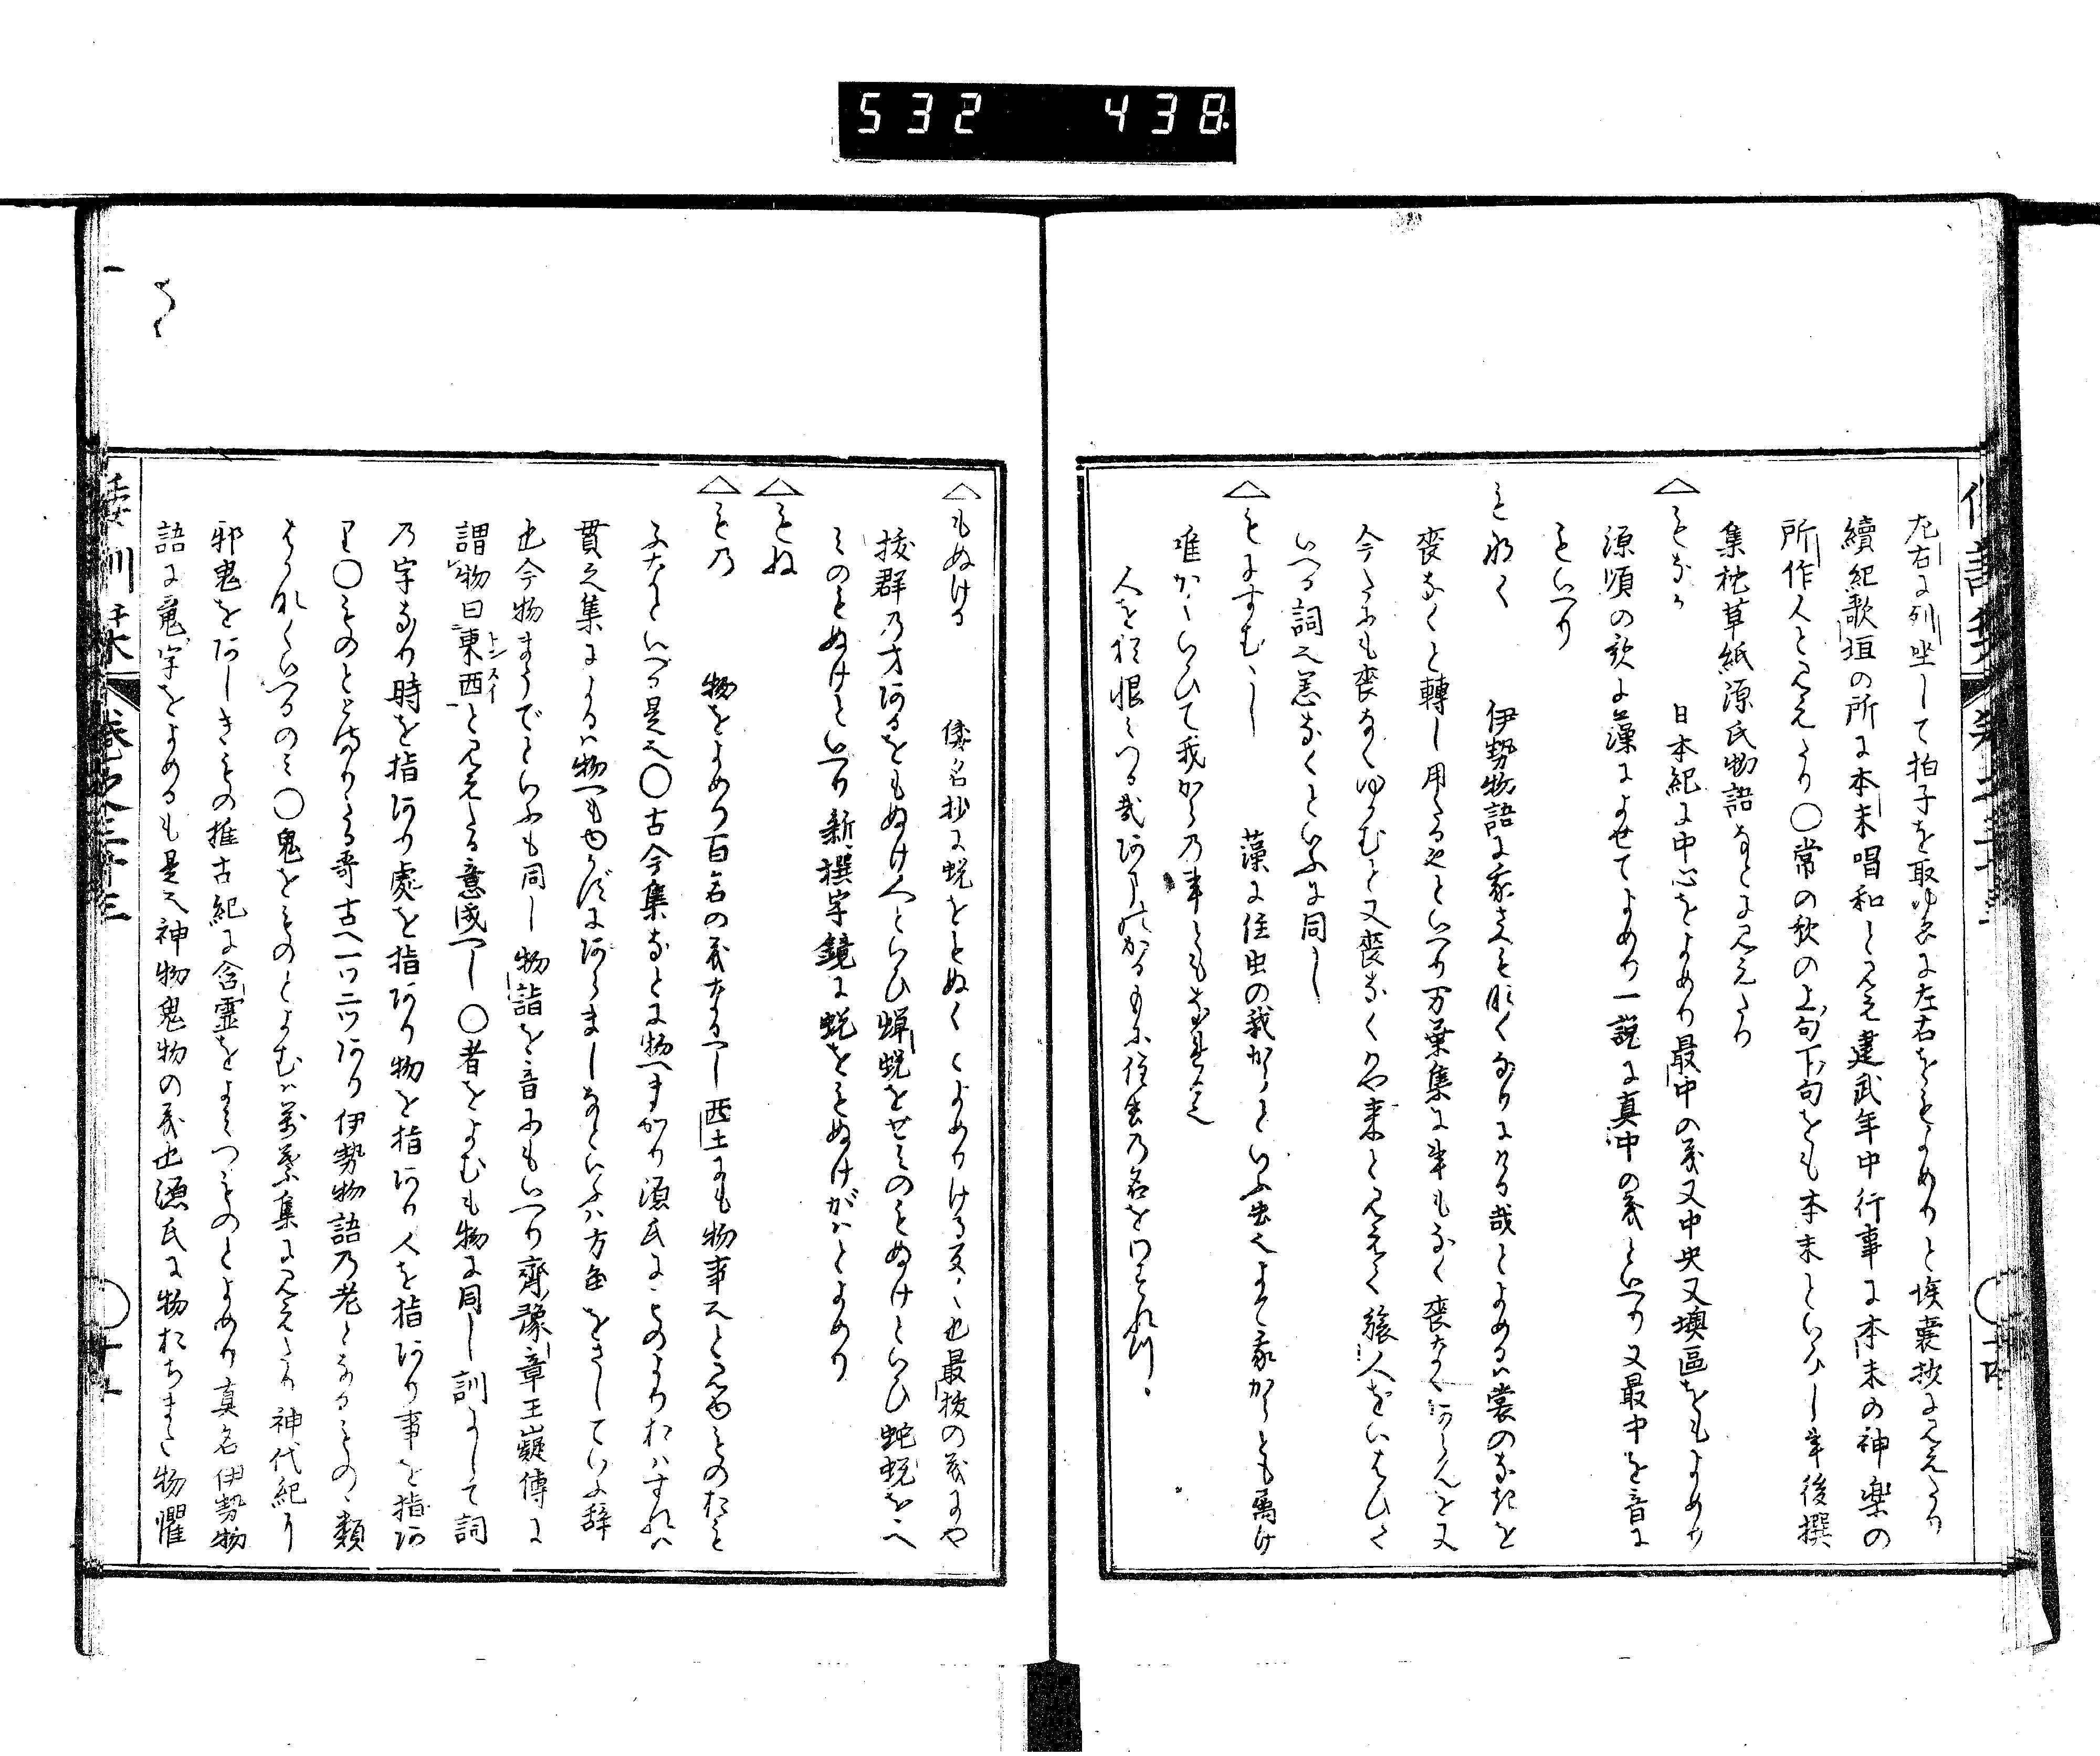 532 438
左右に列坐して拍子を取ゆゑに左右をもとよめりと埃嚢抄に見えたり
續紀歌垣の所に本末唱和と見え建武年中行事に本末の神楽の
所作人と見えたり○常の歌の上句下句をも本末といひし事後撰
集枕草紙源氏物語なとに見えたり
△もなか 日本紀に中心をよめり最中の義又中央又墺區をもよめり
源順の歌に藻によせてよめり一説に真中の義といへり又最中を音に
もいへり
もなく 伊勢物語に我さへもなくなりにける哉とよめるは裳のなきを
喪なくと轉し用たる也といへり万葉集に事もなく喪なくあらんを又
今たにも喪なくゆかむと又喪なくはや来と見えて旅人をいはひて
いへる詞也恙なくといふに同し
△もにすむゝし 藻に住虫の我からといふ虫也よて我からとも属け
唯かくいひて我からの事ともなせる也
人を怨恨みつる哉
△もぬける 倭名抄に蛻をもぬくとよめりける反く也最抜の義にや
抜群の才あるをもぬけ人といひ蝉蛻をせみのもぬけといひ蛇蛻をへ
みのもぬけといへり新撰字鏡に蛻をもぬけがはとよめり
△もね
△もの 物をよめり百名の義なるべし西土にも物事也と見ゆものおも
ふなといへる是也○古今集なとに物へまかり源氏にものよりおはすれは
貫之集によるは物へもゆかずにあらましなといふは方角をさしていふ辞
也今物まうでといふも同し物詣を音にもいへり齊豫章王嶷傳に
謂物曰東西トンスイと見えたる意成べし○者をよむも物に同し訓にして詞
の字なり時を指あり處を指あり物を指あり人を指あり事を指あ
り○ものとと切りたる哥古へ一ツ二ツあり伊勢物語の老となるもの類
ようなくいへるのみ○鬼をものとよむは萬葉集に見えたり神代紀に
邪鬼をあしきもの推古紀に含霊をよみつものとよめり真名伊勢物
語に鬼字をよめるも是也神物鬼物の義也源氏に物おちまた物懼
倭訓栞 巻之三十三